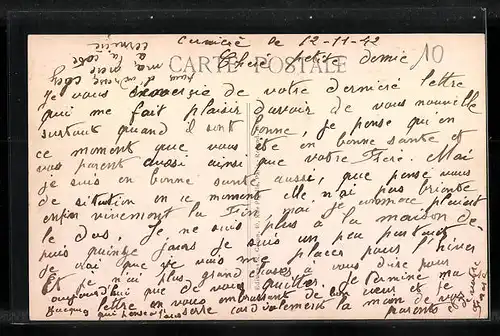 le 12-11-42
Chère petite
CARTE POSTALE
10
Je vous de votre dernière lettre
qui me fait plaisir d'avoir de vous nouvelle
surtout quand il sont bonne, je pense qu'en
ce moment que vous ete en bonne sante et
vos parent aussi ainsi que votre Frere. Mai
je suis en bonne sante aussi, que pense vous
de situation en ce moment elle n'ai pas briante
enfin vivement la Fin, mai je commace plaisit
le dos, Je ne suis plus a la maison de-
puis quinze jours je suis un peu partout
je crai que je vais me places pour l'hiver
Et je n'ai plus grand choses a vous dire pour
aujourd'hui que de vous quitter. Je termine ma
lettre en vous embrassant de bon cœur et je
Jacques qui pense a vous serre cordialement la main de vos
parents